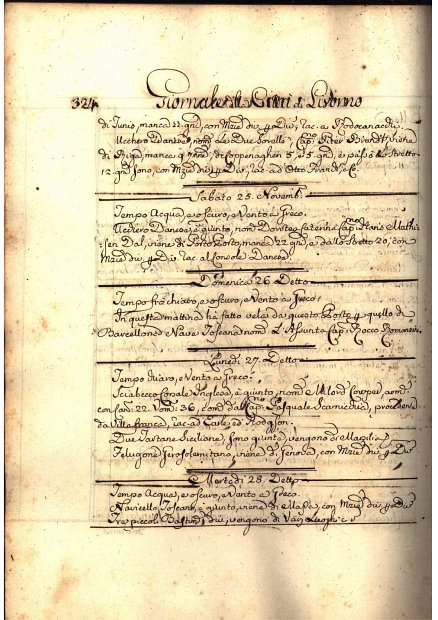 324 Giornale della Città di Livorno
di Junio, manca 22 gni, con Mzie div. p Div, rac. a
Uchero Danese, nom. Le Due Sorelle, Cap. Piter Brandt, viene
di Riga, manca di Coppenaghen e passò lo Stretto
12 gni sono, con Mzie div. p Div, rac. a Otto Franck, e C.
Sabato 25. Novemb.
Tempo Acqua, e oscuro, e Vento a Greco.
Uchero Danese, è giunto, nom. Dorotea Caterina Cap. Hans Mathi:
sen Dal, viene di manca 22 gni, e dallo Stretto 20, con
Mzie div. p Div. rac. al Console Danese.
Domenica 26. Detto
Tempo fra chiaro, e oscuro, e Vento a Greco.
In questa mattina ha fatto vela da questo Porto p quello di
Barcellona e Nave Toscana nom. L'Assunta Cap. Rocco
Lunedì 27. Detto
Tempo chiaro, e Vento a Greco.
Sciabecco Corsale Inglese, è giunto, nom. Milord Cowper, arm.
con Can. 22. Vom. 36, com. dal Cap. Pasquale Scarnicchia, proveniente
da Villafranca, rac. a
Due Tartane Siciliane, sono giunte, vengono di
Felugone Gerosolemitano, viene di Genova, con Mzie div. p Div
Martedì 28. Detto
Tempo Acqua, e oscuro, e Vento a Greco.
Navicello Toscano, è giunto, viene di con Mzie div. p Div
Tre piccoli Bastim. div, vengono di Van Luoghi